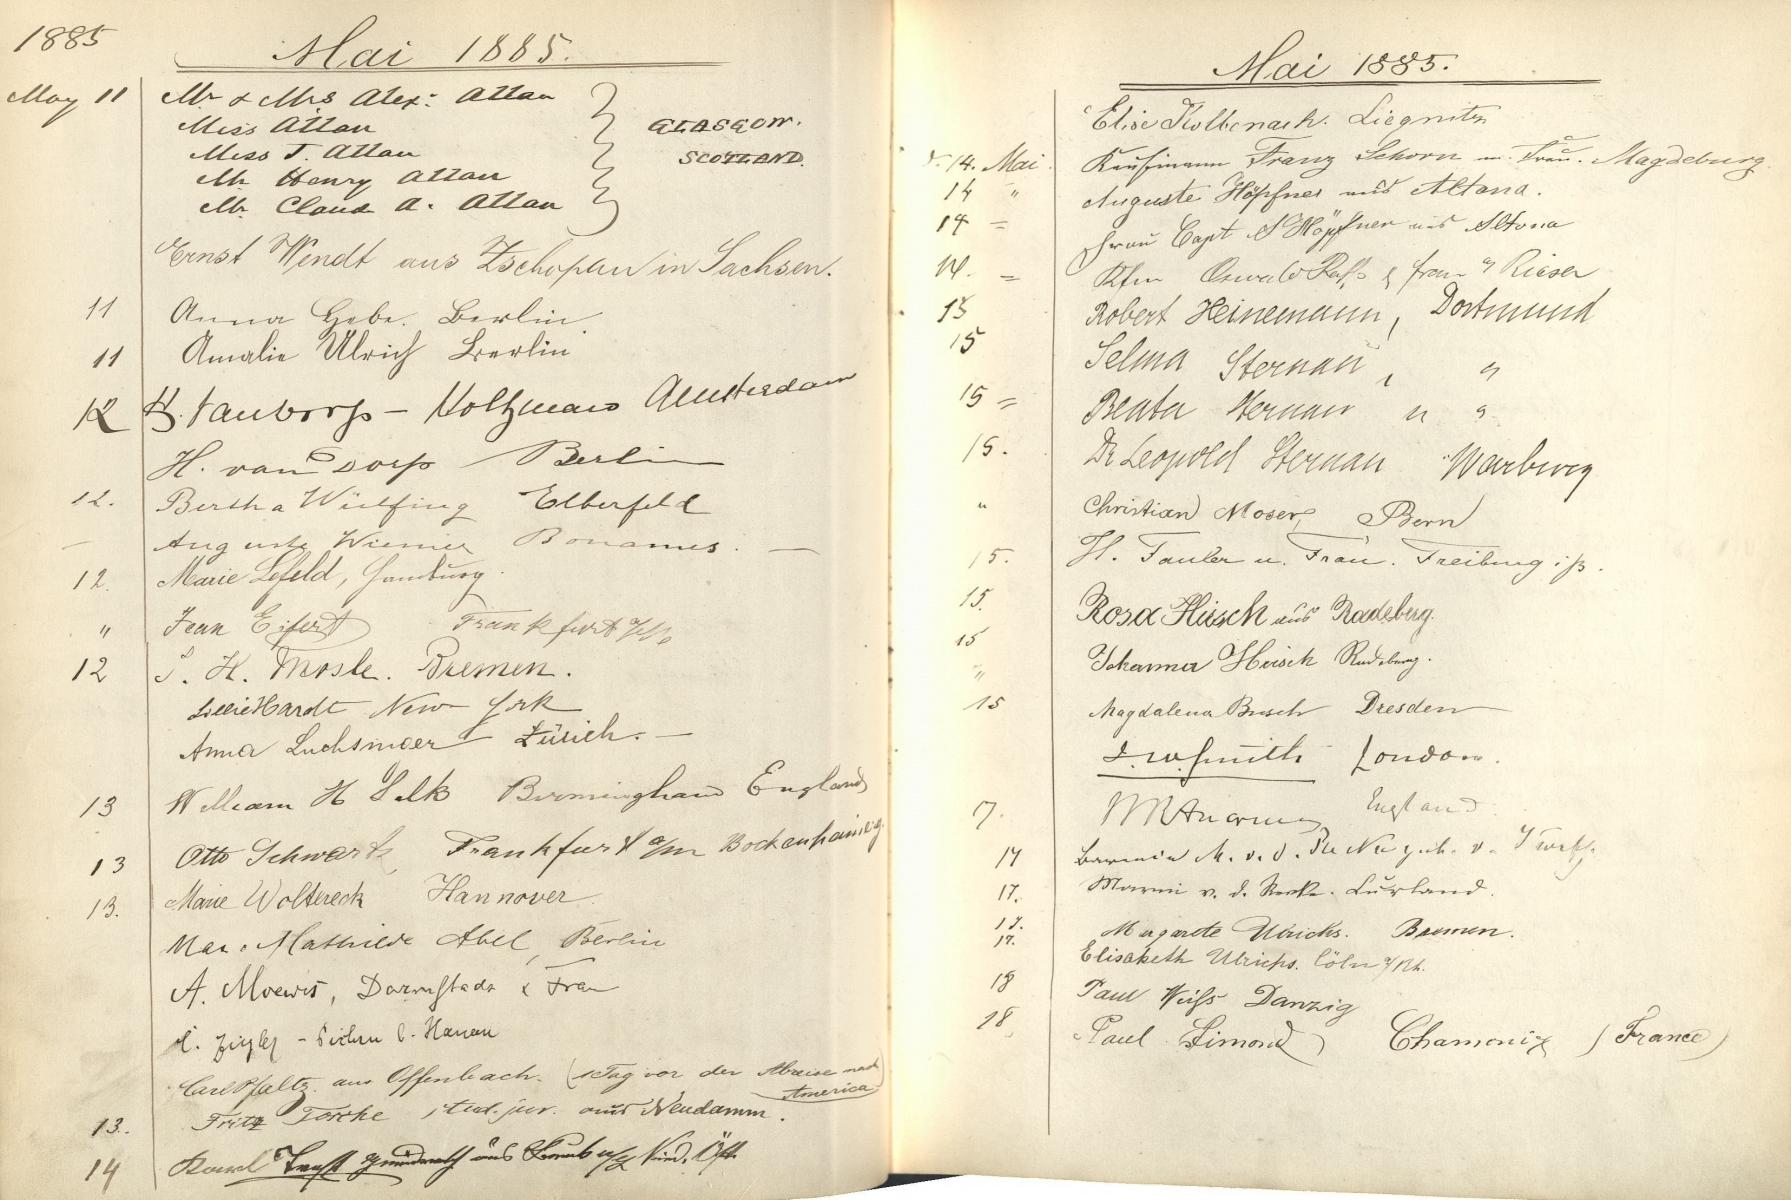 1885
Mai 1885.
May 11 Mr & Mrs Alexr Allan
Miss Allan GLASGOW.
Miss J. Allan SCOTLAND.
Mr Henry Allan
Mr Claud A. Allan
Ernst Wendt aus Zschopau in Sachsen.
11 Anna Gebe. Berlin.
11 Amalie Ulrich Berlin
12 van Dorp - Holtzman Amsterdam
H. van Dorp Berlin
12. Bertha Wülfing Elberfeld
— Auguste Wiemer Bonames. —
12. Marie Lefeld, Hamburg.
" Jean Eifert Frankfurt a/M
12 H. Mosle. Bremen.
Lillie Hardt New York
Anna Luchsinger Zürich. —
13 William H Silk Birmingham England
13 Otto Schwarz Frankfurt a/m Bockenheim
13. Marie Woltereck Hannover.
Mathilde Abel, Berlin
A. Moewis, Darmstadt & Frau
Hanau
Carl Pfaltz. aus Offenbach. (1 Tag vor der Abreise nach America)
13. Fritz Torke stud. jur. aus Neudamm.
14 Karl Ernst aus
Mai 1885.
Elise Kolbenach. Liegnitz
d. 14. Mai. Kaufmann Franz Schorn u. Frau. Magdeburg.
14 " Auguste Höpfner aus Altona.
14 = Frau Capt Höpfner aus Altona
14. = Kfm Oswald & Frau Riesa
15 Robert Heinemann, Dortmund
15 Selma Sternau, "
15 = Beata Sternau " "
15. Dr Leopold Sternau Warburg
" Christian Moser, Bern
15. H. Fauler u. Frau. Freiburg i/B.
15. Rosa Hüsch aus Radeberg.
15 Johanna Radeberg.
"
15 Magdalena Busch Dresden
J. W. Smith London.
7. England
17
17. v. d. Recke. Curland.
17. Margarete Ulrichs. Bremen.
17. Elisabeth Ulrichs. Cöln a/Rh.
18 Paul Weiß Danzig
18 Paul Simond Chamonix (France)